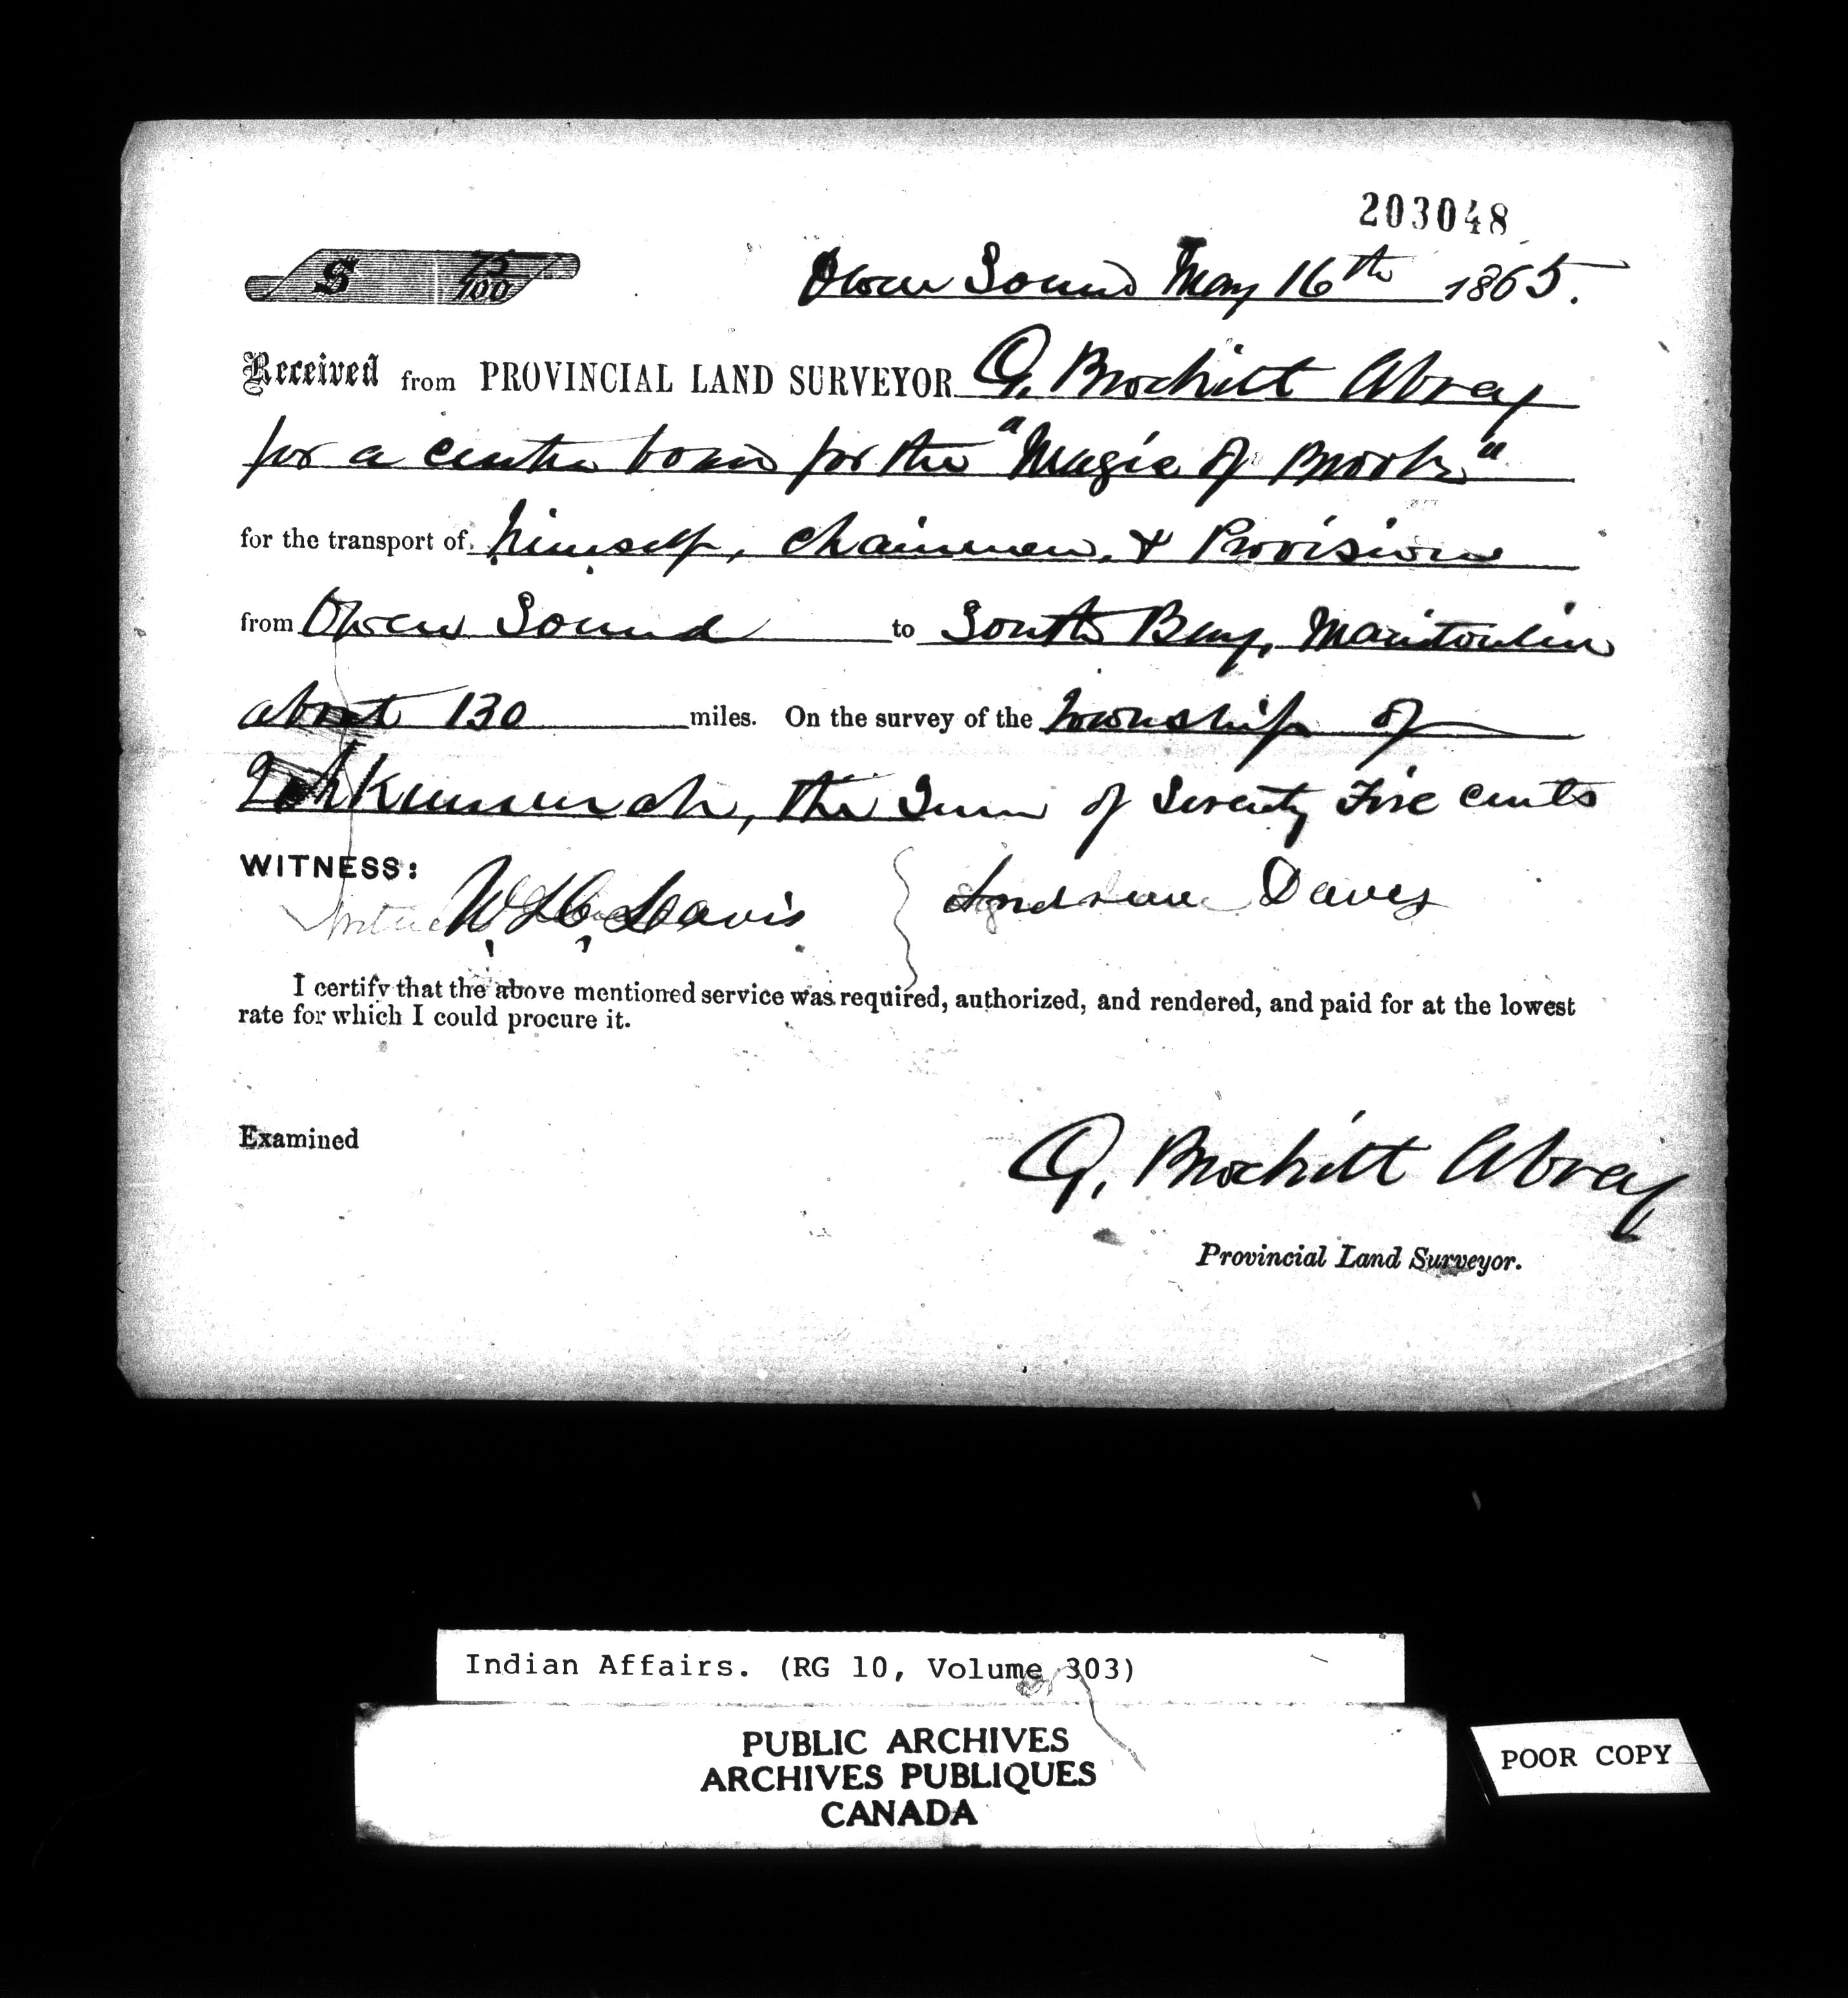 203048
$ 75/100
Owen Sound May 16th 1865.
Received from PROVINCIAL LAND SURVEYOR G. Brockitt Abrey
for a centre board for the "Magie of Brooke"
for the transport of himself, chainmen, & Provisions
from Owen Sound to South Bay, Manitoulin
about 130 miles. On the survey of the Township of
Tehkummah, the Sum of Seventy Five cents
WITNESS:
W. H. Davis Andrew Davey
I certify that the above mentioned service was required, authorized, and rendered, and paid for at the lowest
rate for which I could procure it.
Examined
G. Brockitt Abrey
Provincial Land Surveyor.
Indian Affairs. (RG 10, Volume 303)
PUBLIC ARCHIVES
ARCHIVES PUBLIQUES
CANADA
POOR COPY